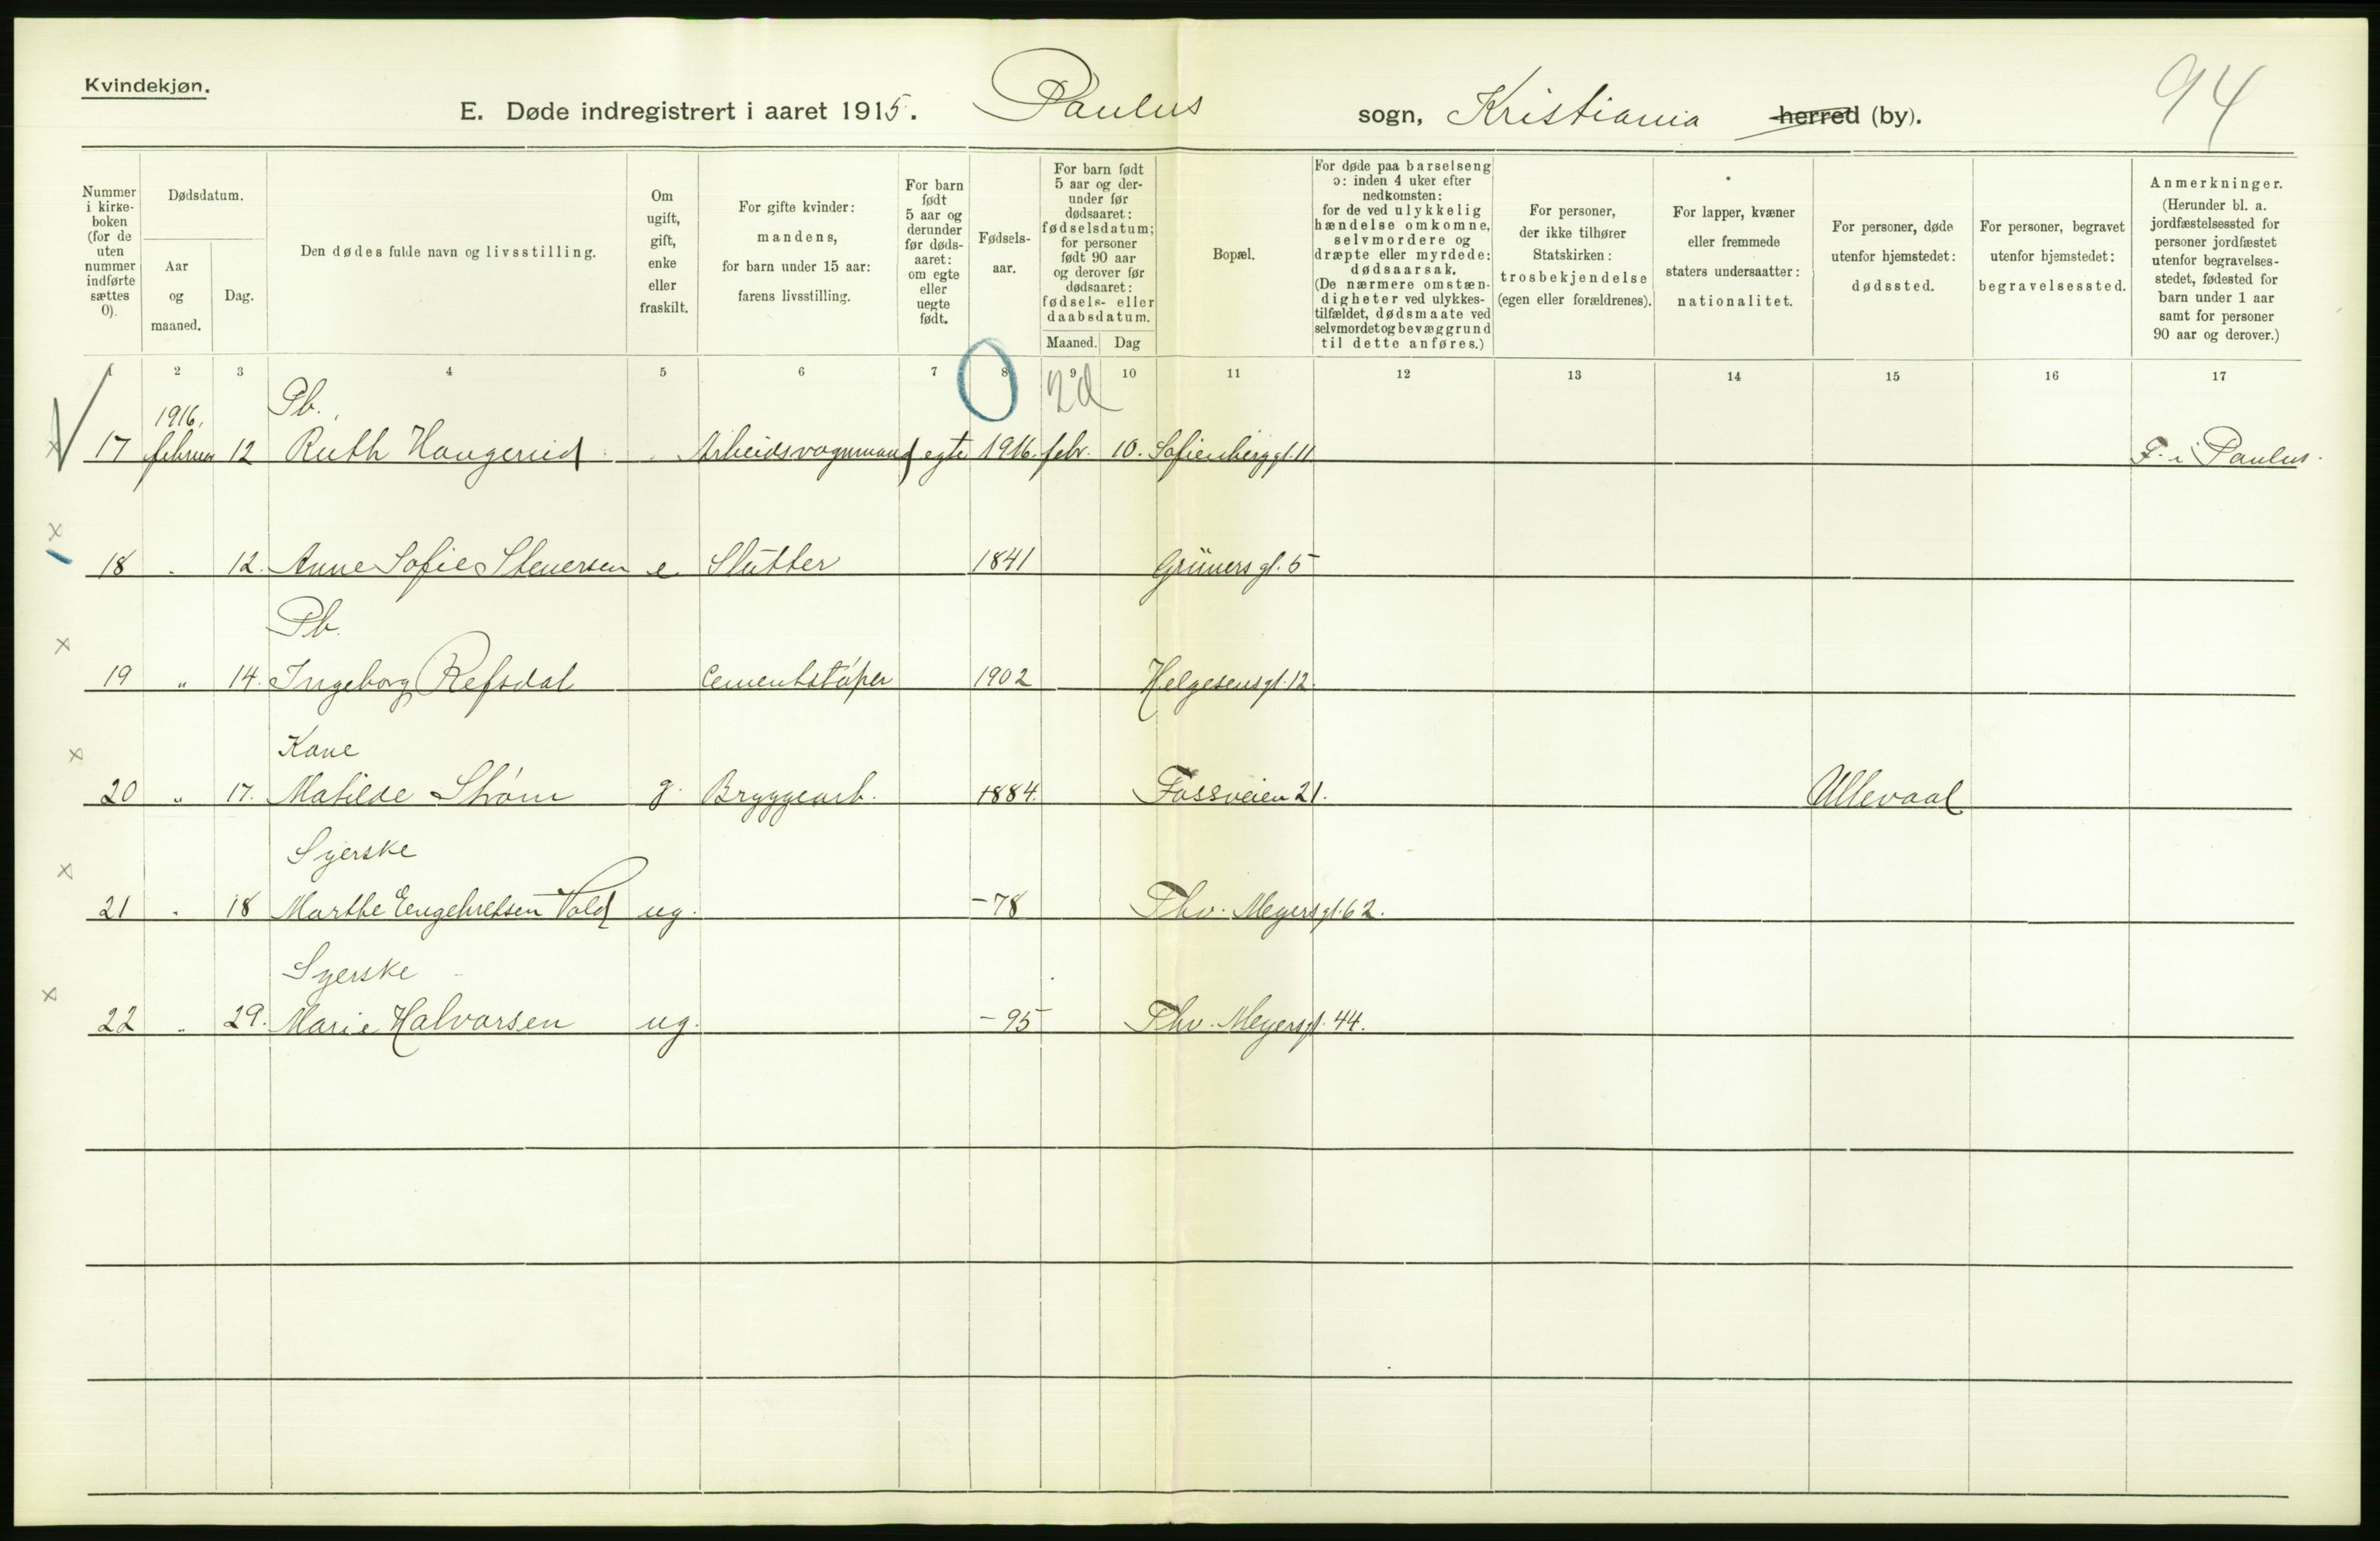 Kvindekjøn.
E. Døde indregistrert i aaret 1915. Paulus sogn, Kristiania herred (by).
94
Nummer i kirke-boken (for de uten nummer indførte sættes 0).
Dødsdatum.
Aar og maaned.
Dag.
Den dødes fulde navn og livsstilling.
Om ugift, gift, enke eller fraskilt.
For gifte kvinder: mandens, for barn under 15 aar: farens livsstilling.
For barn født 5 aar og derunder før døds-aaret: om egte eller uegte født.
Fødsels-aar.
For barn født 5 aar og der-under før dødsaaret: fødselsdatum; for personer født 90 aar og derover før dødsaaret: fødsels- eller daabsdatum.
Maaned. Dag
Bopæl.
For døde paa barselseng ɔ: inden 4 uker efter nedkomsten: for de ved ulykkelig hændelse omkomne, selvmordere og dræpte eller myrdede: dødsaarsak. (De nærmere omstæn-digheter ved ulykkes-tilfældet, dødsmaate ved selvmordet og bevæggrund til dette anføres.)
For personer, der ikke tilhører Statskirken: trosbekjendelse (egen eller forældrenes).
For lapper, kvæner eller fremmede staters undersaatter: nationalitet.
For personer, døde utenfor hjemstedet: dødssted.
For personer, begravet utenfor hjemstedet: begravelsessted.
Anmerkninger. (Herunder bl. a. jordfæstelsessted for personer jordfæstet utenfor begravelses-stedet, fødested for barn under 1 aar samt for personer 90 aar og derover.)
1 2 3 4 5 6 7 8 9 10 11 12 13 14 15 16 17
0 2d
1916. Pb.
17 februar 12 Ruth Haugerud Arbeidsvognmand egte 1916. febr. 10. Sofienberggt. 11 F. i Paulus.
18 " 12. Anne Sofie Stenersen e. Slutter 1841 Grüners gt. 5
Pb.
19 " 14. Ingeborg Refsdal Cementstøper 1902 Helgesensgt. 12.
Kone
20 " 17. Matilde Strøm g. Bryggearb. 1884. Fossveien 21. Ullevaal
Syerske
21 " 18 Marthe Engebretsen Vold ug. -78 Thv. Meyersgt. 62.
Syerske
22 " 29. Marie Halvorsen ug. -95 Thv. Meyersgt. 44.